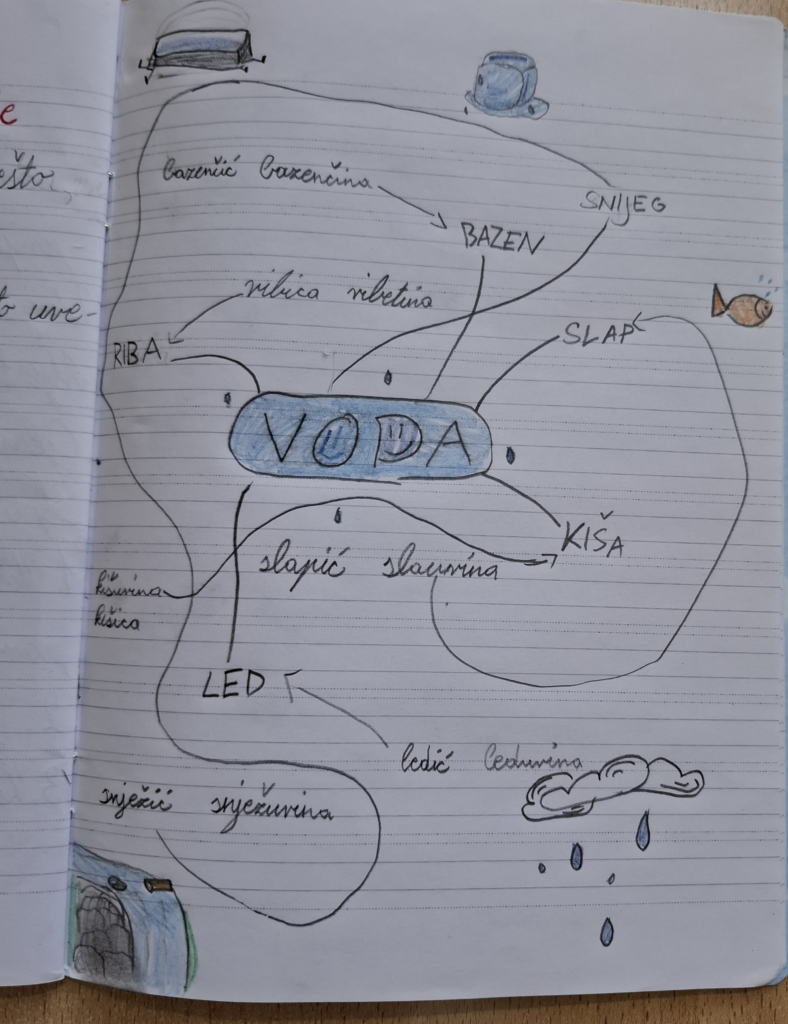 e
ešto,
o uve-
bazenčić bazenčina
SNIJEG
BAZEN
ribica ribetina
SLAP
RIBA
VODA
KIŠA
slapić slauvina
kišuvina
kišica
LED
ledić leduvina
snježić snježuvina